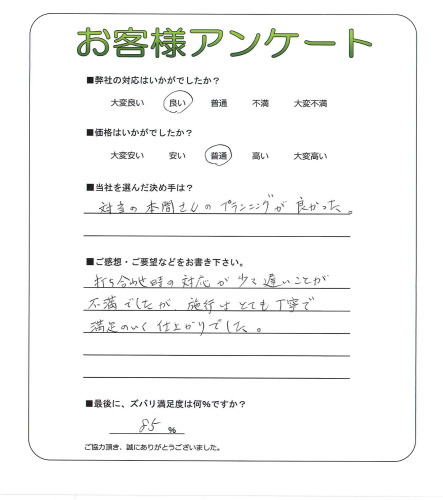 お客様アンケート
■弊社の対応はいかがでしたか？
大変良い 良い 普通 不満 大変不満
■価格はいかがでしたか？
大変安い 安い 普通 高い 大変高い
■当社を選んだ決め手は？
対当の本間さんのプランニングが良かった。
■ご感想・ご要望などをお書き下さい。
打ち合わせ時の対応が少々遅いことが
不満でしたが、施行はとても丁寧で
満足のいく仕上がりでした。
■最後に、ズバリ満足度は何%ですか？
85 %
ご協力頂き、誠にありがとうございました。